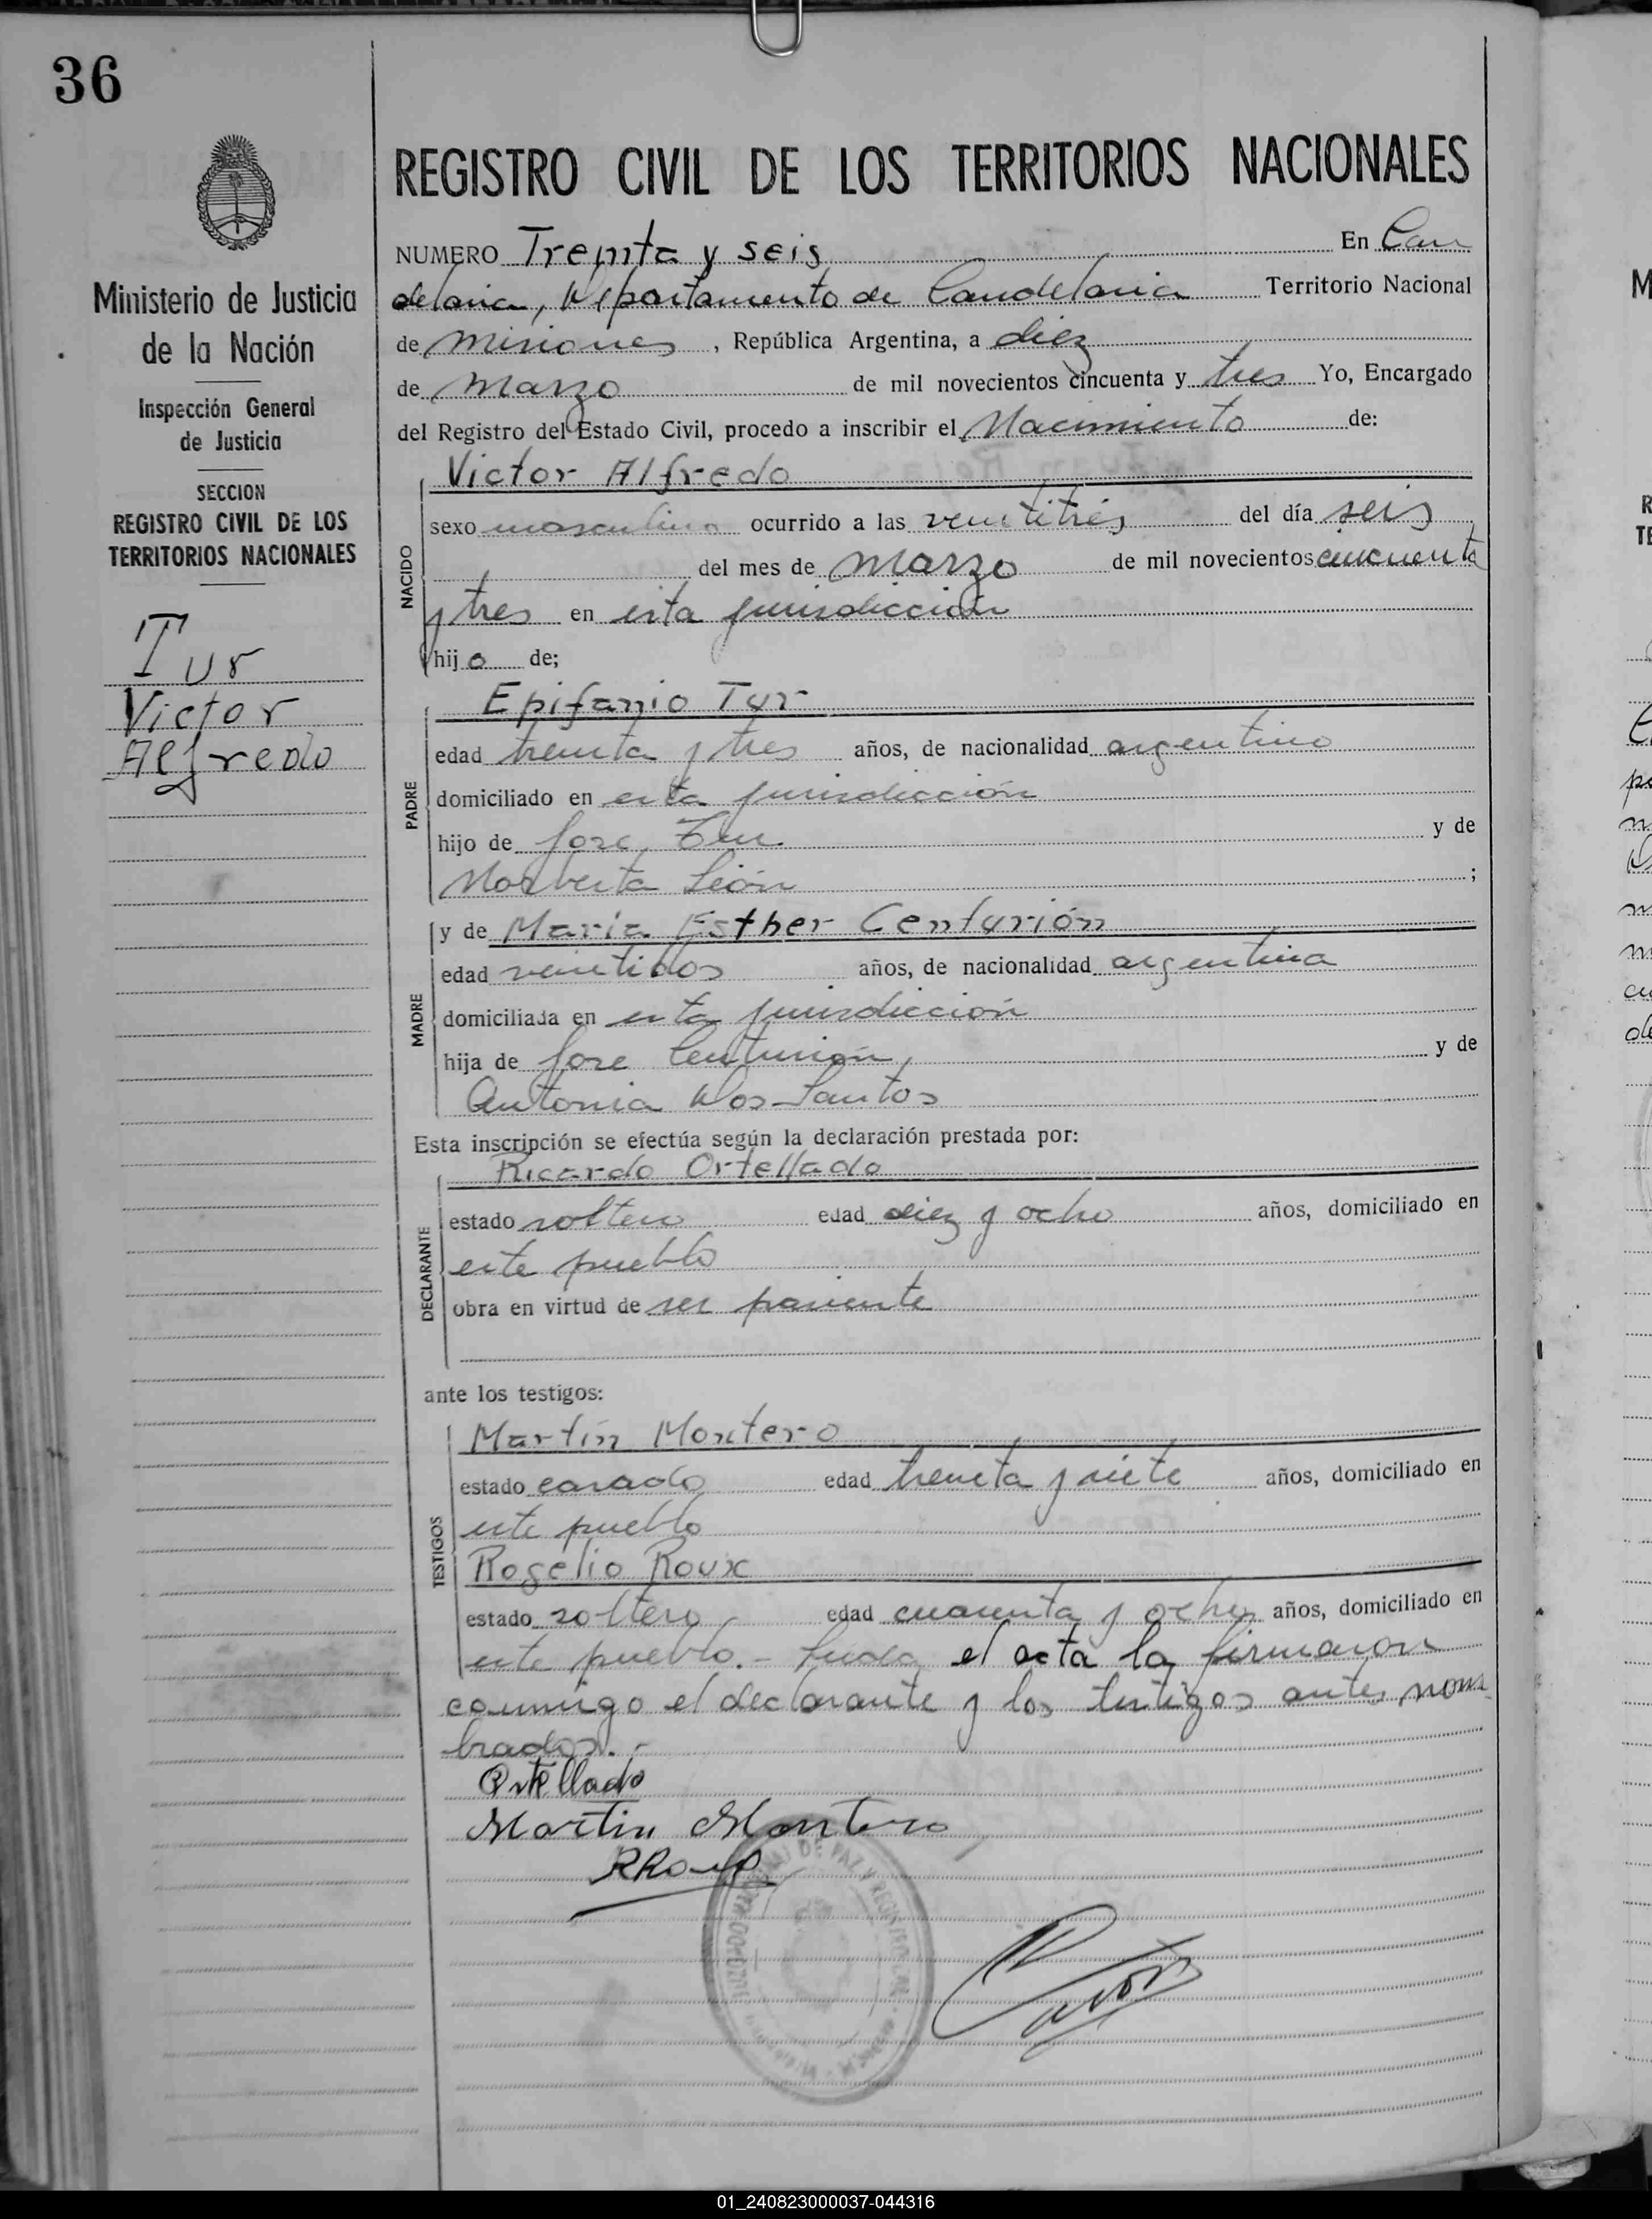 36
Ministerio de Justicia
de la Nación
Inspección General
de Justicia
SECCION
REGISTRO CIVIL DE LOS
TERRITORIOS NACIONALES
Tur
Victor
Alfredo
REGISTRO CIVIL DE LOS TERRITORIOS NACIONALES
NUMERO Treinta y seis En Can
delaria, Departamento de Candelaria Territorio Nacional
de Misiones, República Argentina, a diez
de Marzo de mil novecientos cincuenta y tres Yo, Encargado
del Registro del Estado Civil, procedo a inscribir el Nacimiento de:
Victor Alfredo
NACIDO
sexo masculino ocurrido a las veintitrés del día seis
del mes de marzo de mil novecientos cincuenta
y tres en esta jurisdicción
hijo de;
Epifanio Tur
PADRE
edad treinta y tres años, de nacionalidad argentino
domiciliado en esta jurisdicción
hijo de Jose Tur y de
Norberta León ;
y de Maria Esther Centurión
MADRE
edad veintidos años, de nacionalidad argentina
domiciliada en esta jurisdicción
hija de Jose Centurión, y de
Antonia Dos Santos
Esta inscripción se efectúa según la declaración prestada por:
Ricardo Ortellado
DECLARANTE
estado soltero edad diez y ocho años, domiciliado en
este pueblo
obra en virtud de ser pariente
ante los testigos:
Martín Montero
TESTIGOS
estado casado edad treinta y siete años, domiciliado en
este pueblo
Rogelio Roux
estado soltero edad cuarenta y ocho años, domiciliado en
este pueblo.- Leida el acta la firmaron
conmigo el declarante y los testigos antes nom
brados.-
Ortellado
Martin Montero
RRoux
01_240823000037-044316